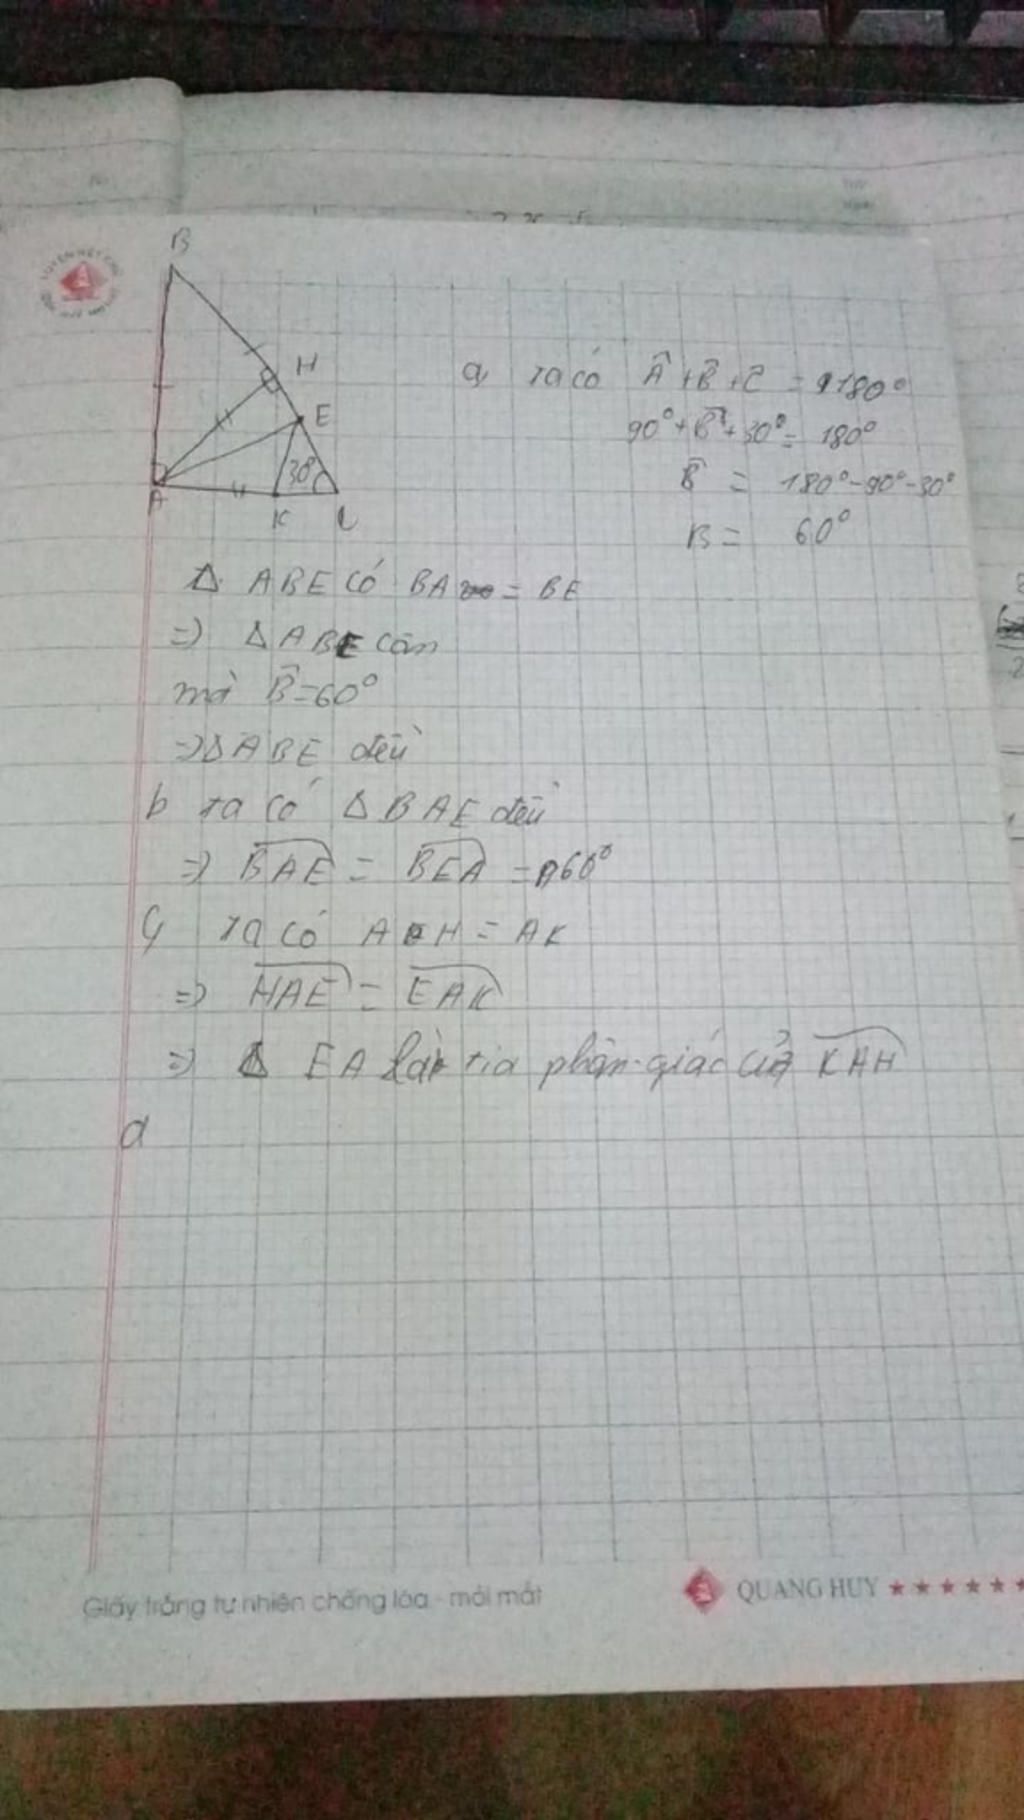 B
H
E
30°
A
K
C
a, Ta có Â + B̂ + Ĉ = 180°
90° + B̂ + 30° = 180°
B̂ = 180° - 90° - 30°
B = 60°
Δ ABE có BA = BE
=> Δ ABE cân
mà B̂ = 60°
=> Δ ABE đều
b Ta có Δ BAE đều
=> BAE = BEA = 60°
c, Ta có AH = AK
=> HAE = EAK
=> EA là tia phân giác của KAH
d
Giấy trắng tự nhiên chống lóa - mỏi mắt
QUANG HUY ★★★★★★